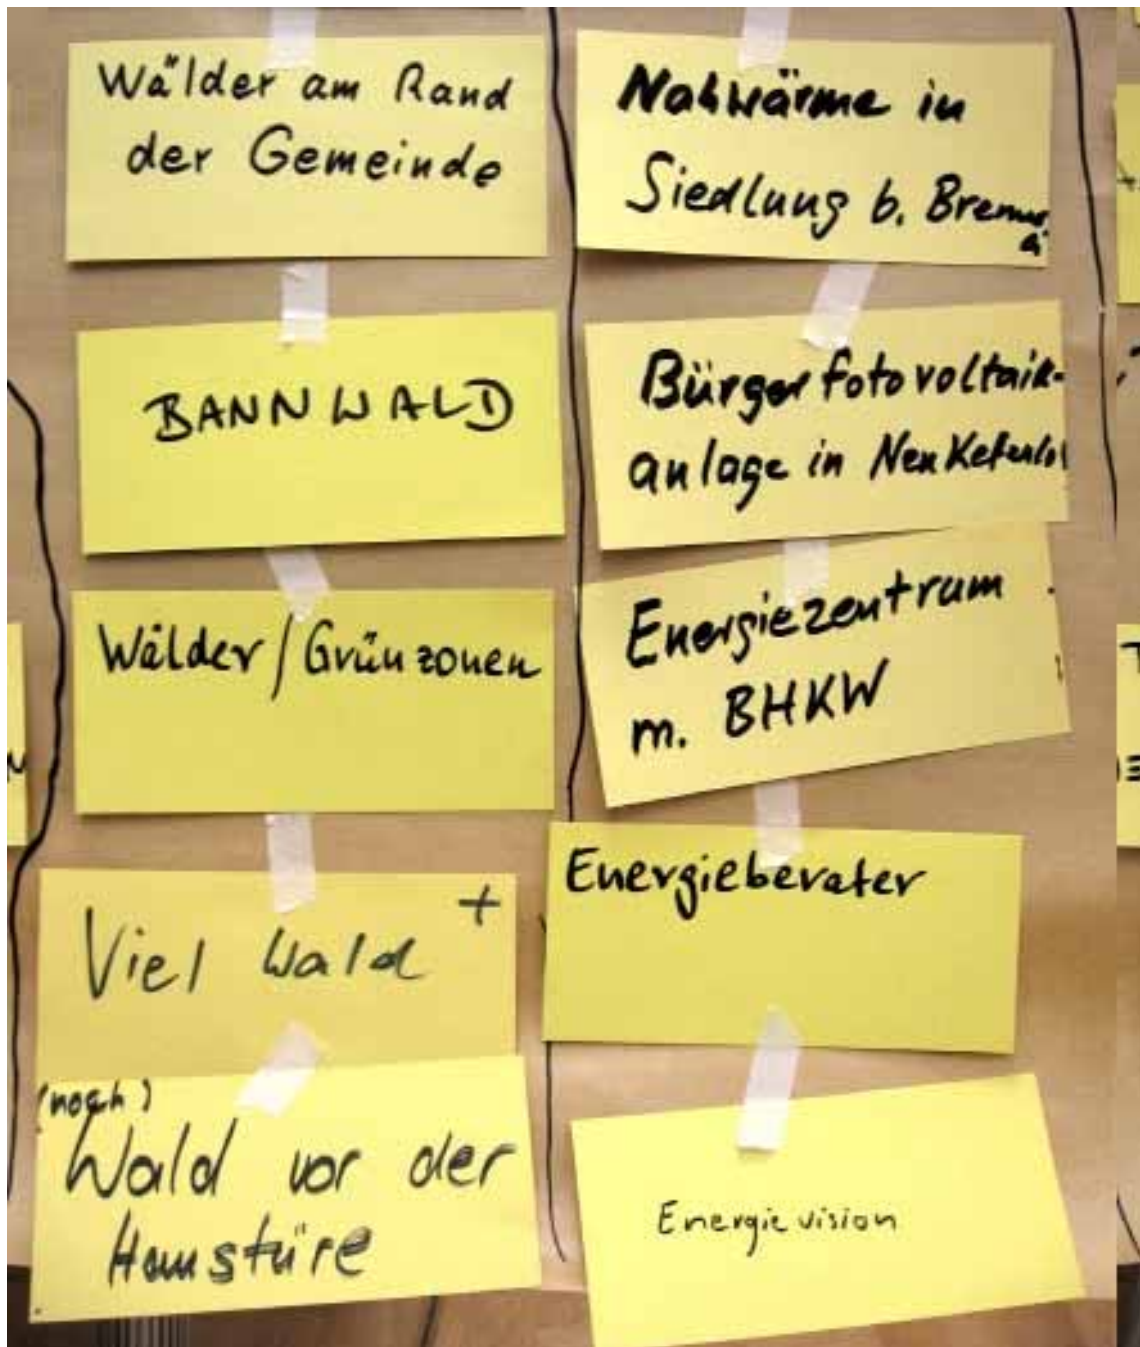 Wälder am Rand
der Gemeinde
BANNWALD
Wälder/Grünzonen
Viel Wald +
(noch)
Wald vor der
Haustüre
Nahwärme in
Siedlung b.
Bürgerfotovoltaik-
anlage in
Energiezentrum
m. BHKW
Energieberater
Energievision